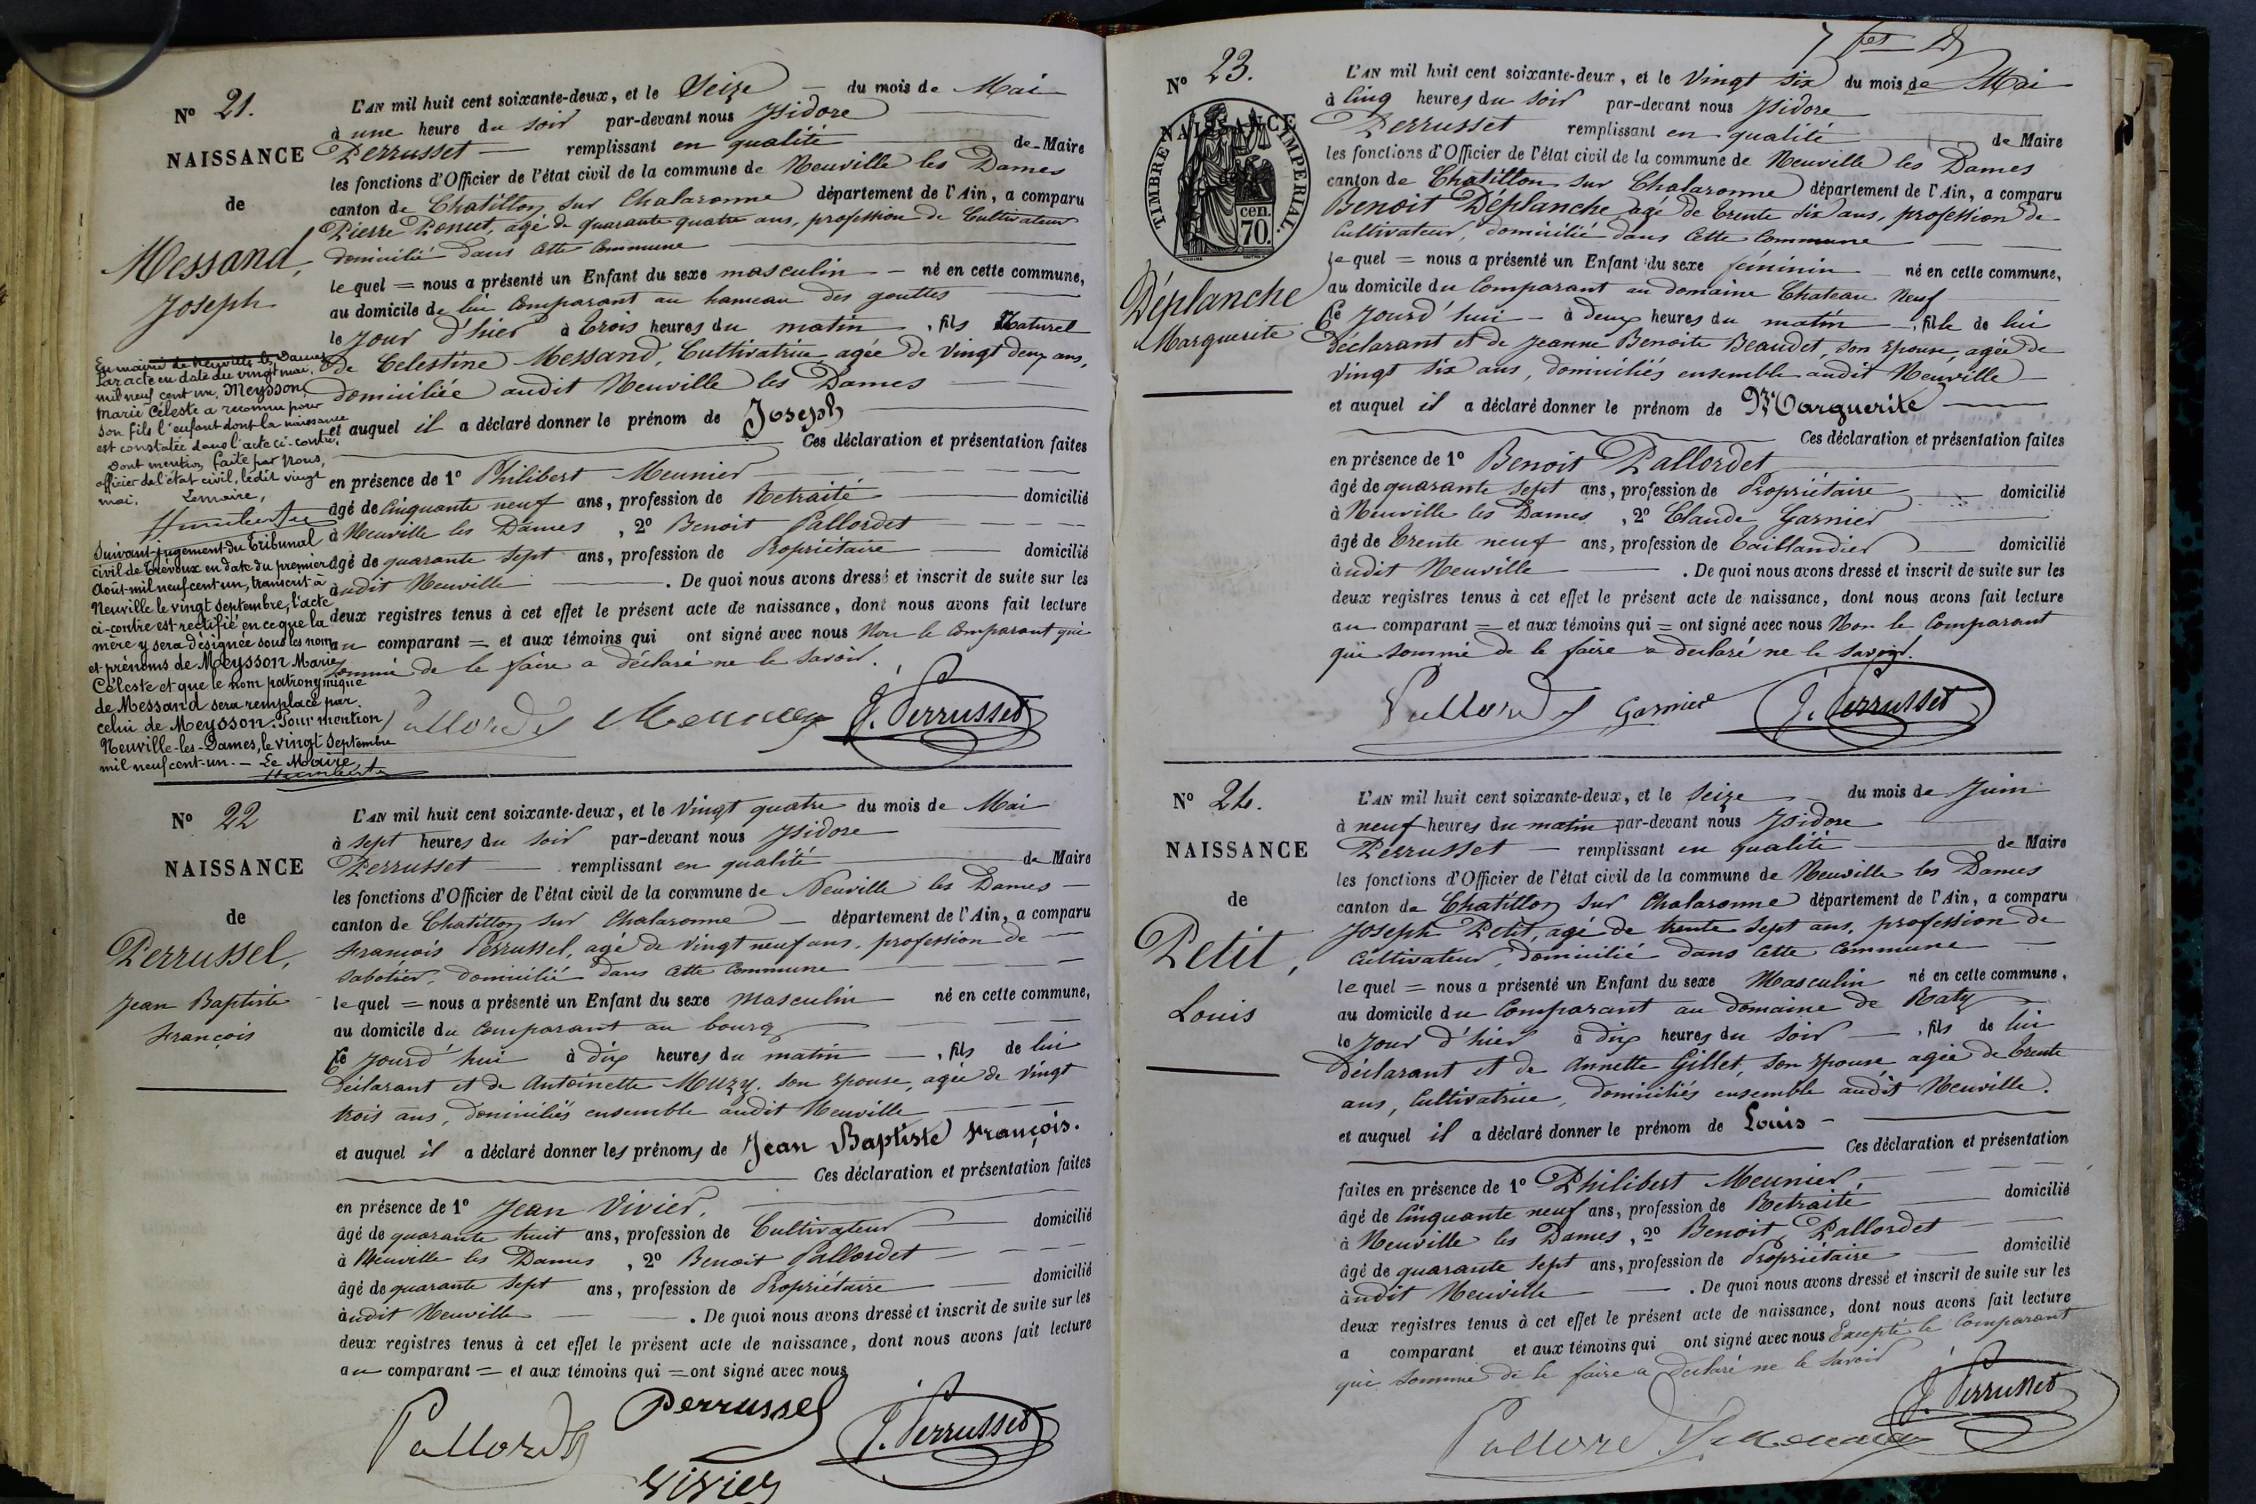 N° 21.
NAISSANCE
de
Messand,
Joseph
En mairie de Neuville les Dames
Par acte en date du vingt mai,
mil neuf cent un, Meysson
Marie Céleste a reconnu pour
son fils l'enfant dont la naissance
est constatée dans l'acte ci-contre,
Dont mention faite par nous,
officier de l'état civil, ledit vingt
mai. Le maire,
Humbert
Suivant jugement du Tribunal
civil de Trévoux en date du premier
Août mil neuf cent un, transcrit à
Neuville le vingt septembre, l'acte
ci-contre est rectifié en ce que la
mère y sera désignée sous les nom
et prénoms de Meysson Marie
Céleste et que le nom patronymique
de Messand sera remplacé par
celui de Meysson. Pour mention
Neuville-les-Dames, le vingt Septembre
mil neuf cent-un. — Le Maire,
Humbert
L'AN mil huit cent soixante-deux, et le Seize — du mois de Mai
à une heure du soir par-devant nous Isidore
Perrusset — remplissant en qualité de Maire
les fonctions d'Officier de l'état civil de la commune de Neuville les Dames
canton de Chatillon sur Chalaronne département de l'Ain, a comparu
Pierre Ponut, agé de quarante quatre ans, profession de Cultivateur
domicilié dans cette Commune
lequel = nous a présenté un Enfant du sexe masculin — né en cette commune,
au domicile de lui Comparant au hameau des gouttes
le jour d'hier à trois heures du matin, fils Naturel
de Celestine Messand, Cultivatrice agée de vingt deux ans,
domiciliée audit Neuville les Dames
et auquel il a déclaré donner le prénom de Joseph
Ces déclaration et présentation faites
en présence de 1° Philibert Meunier
âgé de Cinquante neuf ans, profession de Retraité domicilié
à Neuville les Dames, 2° Benoit Pallordet
âgé de quarante sept ans, profession de Propriétaire domicilié
audit Neuville . De quoi nous avons dressé et inscrit de suite sur les
deux registres tenus à cet effet le présent acte de naissance, dont nous avons fait lecture
au comparant = et aux témoins qui ont signé avec nous Non le Comparant qui
sommé de le faire a déclaré ne le savoir.
Pallordet Meunier J. Perrusset
N° 22
NAISSANCE
de
Perrussel,
Jean Baptiste
François
L'AN mil huit cent soixante-deux, et le Vingt quatre du mois de Mai
à sept heures du soir par-devant nous Isidore
Perrusset — remplissant en qualité de Maire
les fonctions d'Officier de l'état civil de la commune de Neuville les Dames —
canton de Chatillon sur Chalaronne — département de l'Ain, a comparu
François Perrussel, agé de vingt neuf ans, profession de
Sabotier, domicilié dans cette Commune
lequel = nous a présenté un Enfant du sexe Masculin né en cette commune,
au domicile du Comparant au bourg
Ce jourd'hui à dix heures du matin —, fils de lui
déclarant et de Antoinette Muzy, son Epouse, agée de vingt
trois ans, domiciliés ensemble audit Neuville
et auquel il a déclaré donner les prénoms de Jean Baptiste François.
Ces déclaration et présentation faites
en présence de 1° Jean Vivier,
âgé de quarante huit ans, profession de Cultivateur domicilié
à Neuville les Dames, 2° Benoit Pallordet
âgé de quarante sept ans, profession de Propriétaire domicilié
audit Neuville . De quoi nous avons dressé et inscrit de suite sur les
deux registres tenus à cet effet le présent acte de naissance, dont nous avons fait lecture
au comparant = et aux témoins qui = ont signé avec nous
Pallordet Perrussel J. Perrusset
Vivier
N° 23.
NAISSANCE
de
TIMBRE IMPERIAL
70 cen.
Déplanche
Marguerite
L'AN mil huit cent soixante-deux, et le Vingt six du mois de Mai
à Cinq heures du soir par-devant nous Isidore
Perrusset remplissant en qualité de Maire
les fonctions d'Officier de l'état civil de la commune de Neuville les Dames
canton de Chatillon sur Chalaronne département de l'Ain, a comparu
Benoit Déplanche agé de trente six ans, profession de
Cultivateur, domicilié dans Cette Commune
lequel = nous a présenté un Enfant du sexe féminin né en cette commune,
au domicile du Comparant au domaine Chateau Neuf
Ce jourd'hui — à deux heures du matin —, fille de lui
déclarant et de Jeanne Benoite Beaudet, son Epouse, agée de
vingt six ans, domiciliés ensemble audit Neuville
et auquel il a déclaré donner le prénom de Marguerite
Ces déclaration et présentation faites
en présence de 1° Benoit Pallordet
âgé de quarante sept ans, profession de Propriétaire domicilié
à Neuville les Dames, 2° Claude Garnier
âgé de trente neuf ans, profession de Taillandier domicilié
audit Neuville . De quoi nous avons dressé et inscrit de suite sur les
deux registres tenus à cet effet le présent acte de naissance, dont nous avons fait lecture
au comparant = et aux témoins qui = ont signé avec nous Non le Comparant
qui sommé de le faire a declaré ne le savoir.
Pallordet Garnier J. Perrusset
N° 24.
NAISSANCE
de
Petit,
Louis
L'AN mil huit cent soixante-deux, et le Seize du mois de Juin
à neuf heures du matin par-devant nous Isidore
Perrusset — remplissant en qualité de Maire
les fonctions d'Officier de l'état civil de la commune de Neuville les Dames
canton de Chatillon sur Chalaronne département de l'Ain, a comparu
Joseph Petit, agé de trente sept ans, profession de
Cultivateur, domicilié dans Cette Commune
lequel = nous a présenté un Enfant du sexe Masculin né en cette commune,
au domicile du Comparant au domaine de Raty
le jour d'hier à dix heures du soir —, fils de lui
déclarant et de Annette Gillet, son Epouse agée de trente
ans, Cultivatrice, domiciliés ensemble audit Neuville.
et auquel il a déclaré donner le prénom de Louis
Ces déclaration et présentation
faites en présence de 1° Philibert Meunier,
âgé de Cinquante neuf ans, profession de Retraité domicilié
à Neuville les Dames, 2° Benoit Pallordet
âgé de quarante sept ans, profession de Propriétaire domicilié
audit Neuville . De quoi nous avons dressé et inscrit de suite sur les
deux registres tenus à cet effet le présent acte de naissance, dont nous avons fait lecture
a comparant et aux témoins qui ont signé avec nous Excepté le Comparant
qui sommé de le faire a declaré ne le savoir
Pallordet Meunier J. Perrusset